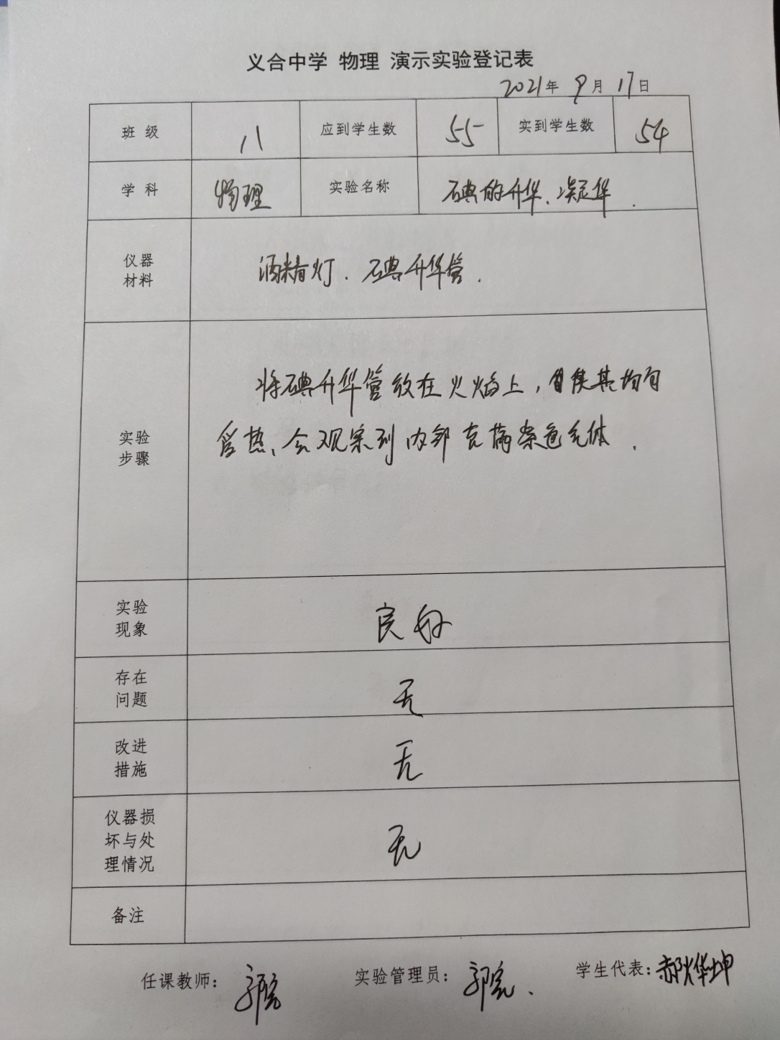 义合中学 物理 演示实验登记表
2021年 9月 17日
班级 八 应到学生数 55 实到学生数 54
学科 物理 实验名称 碘的升华、凝华.
仪器
材料
酒精灯. 碘升华管.
实验
步骤
将碘升华管放在火焰上, 使其均匀
受热, 会观察到内部充满紫色气体.
实验
现象
良好
存在
问题
无
改进
措施
无
仪器损
坏与处
理情况
无
备注
任课教师: 实验管理员: 学生代表: